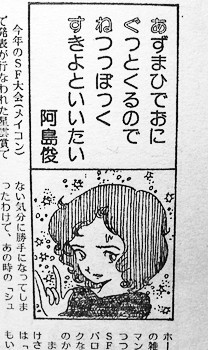 あずまひでおに
ぐつとくるので
ねつつぽつく
すきよといいたい
阿島俊
今年のＳＦ大会（メイコン）
で発表が行なわれた星雲賞で
ない気分に勝手になってしま
ったわけで、あの時の「シュ
ホー
の雑
マン
つつ
ＳＦ
パロ
クな
のか
ま
けさ
は「
もい